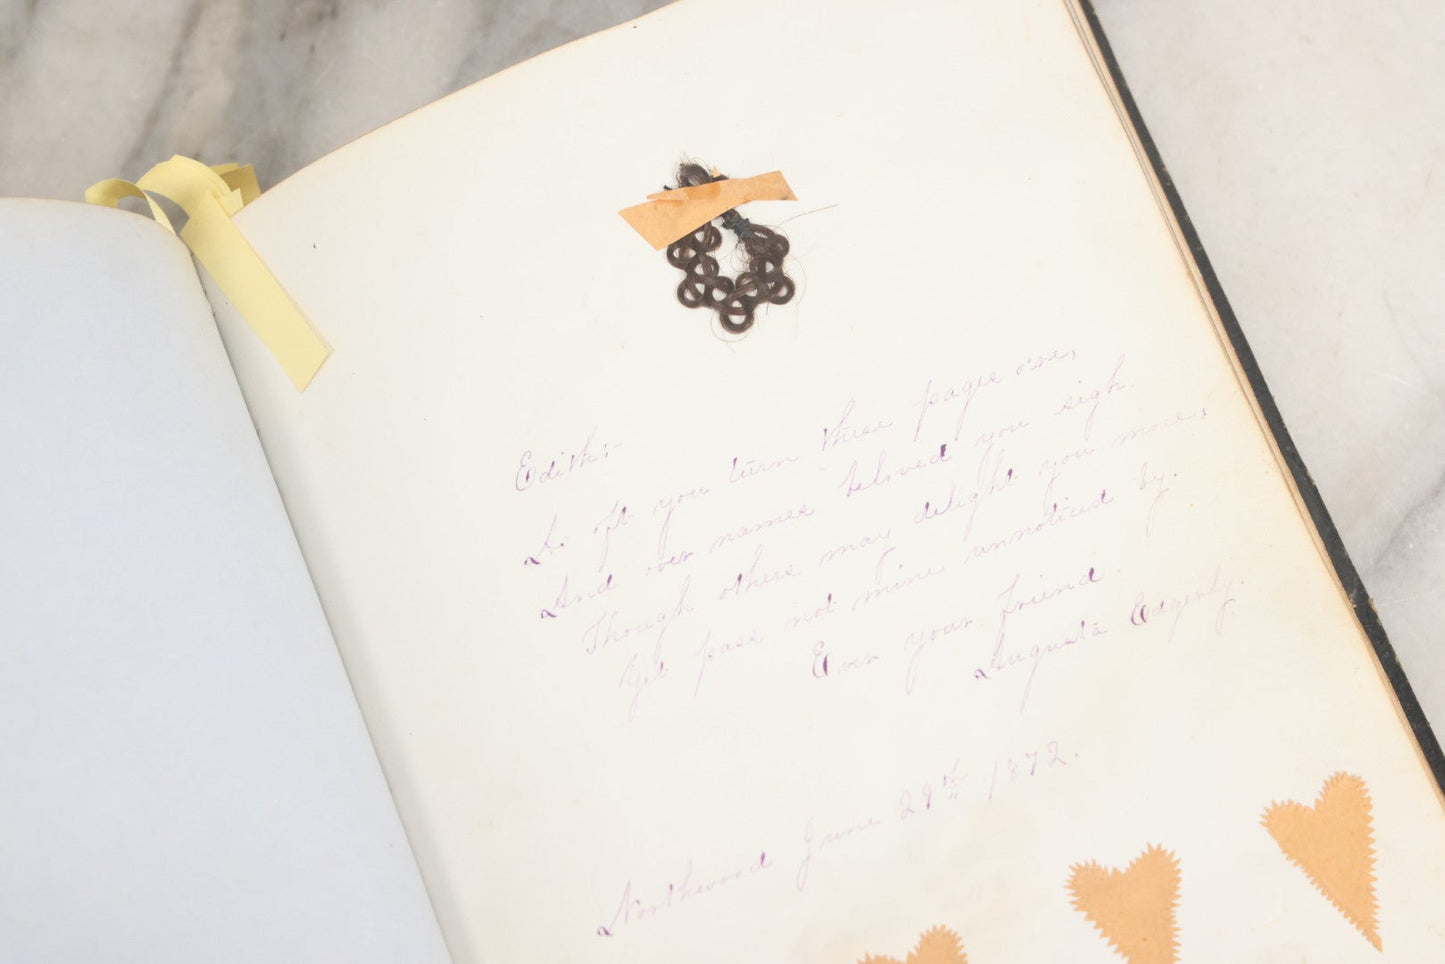 Edith:-
As oft you turn these pages o'er,
And over names beloved you sigh.
Though others may delight you more,
Yet pass not mine unnoticed by.
Ever your friend.
Augusta Edgerly.
Northwood June 29th 1872.